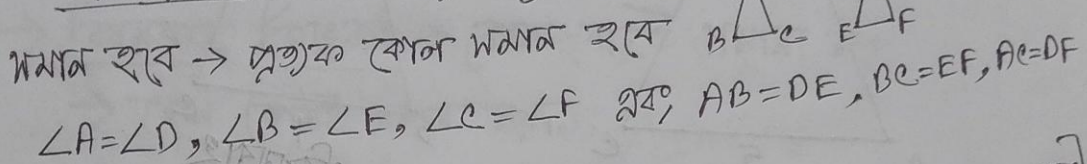 সমান হবে → প্রত্যেক কোন সমান হবে B C E F
∠A=∠D, ∠B=∠E, ∠C=∠F এবং, AB=DE, BC=EF, AC=DF